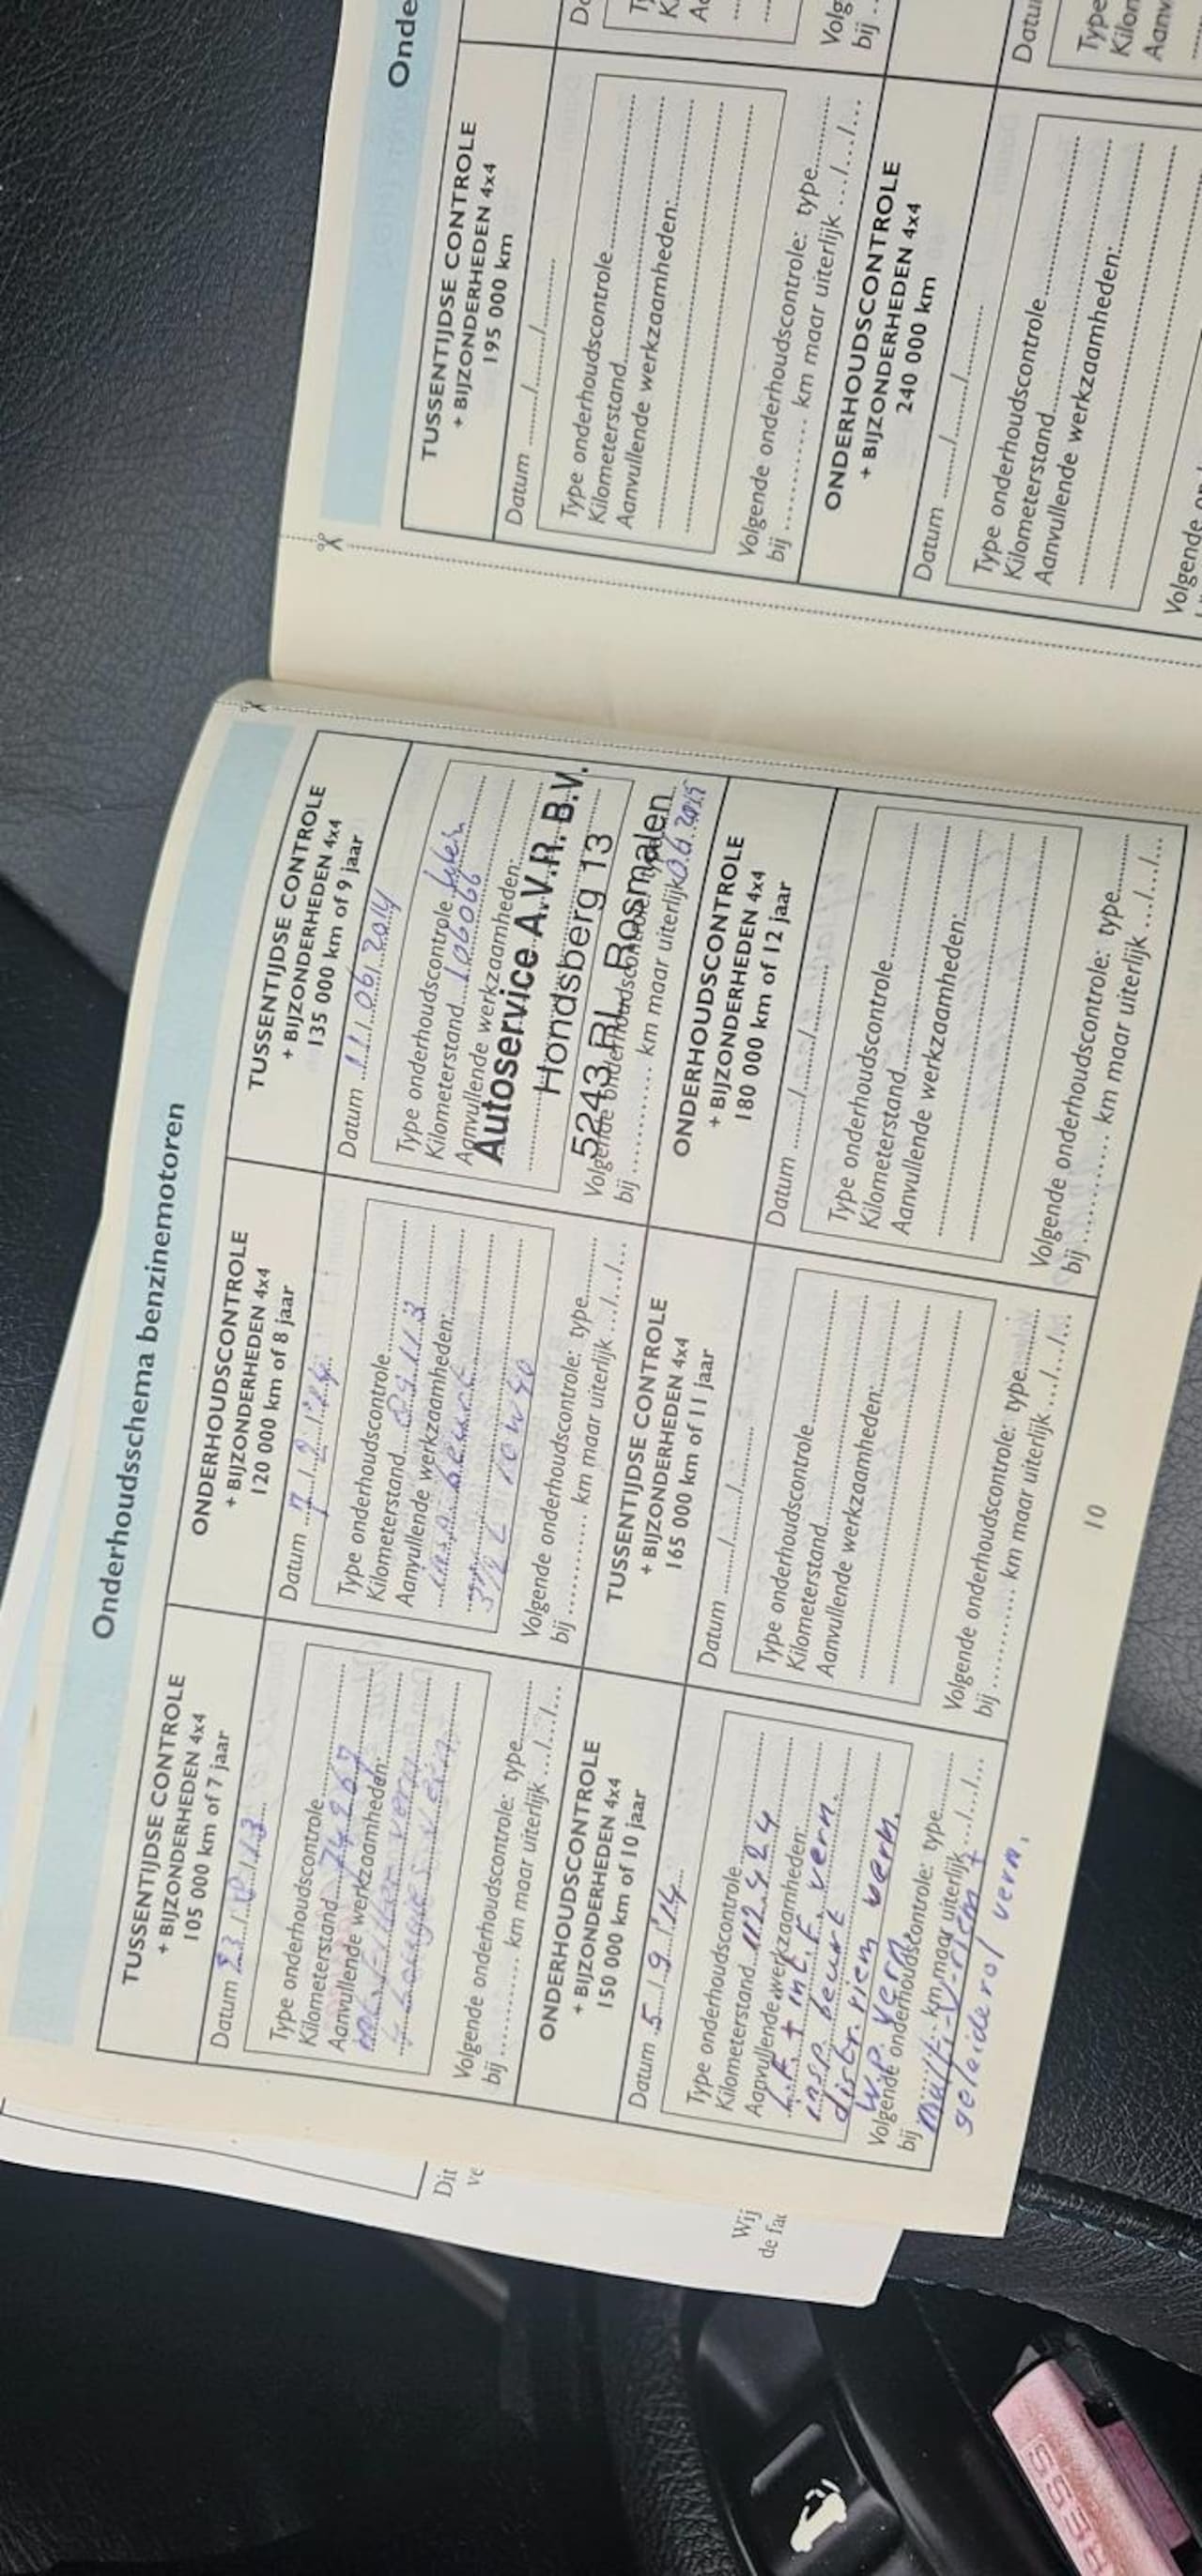 Onderhoudsschema benzinemotoren
TUSSENTIJDSE CONTROLE
+ BIJZONDERHEDEN 4x4
105 000 km of 7 jaar
Datum
Type onderhoudscontrole
Kilometerstand
Aanvullende werkzaamheden:
Volgende onderhoudscontrole: type
bij .......... km maar uiterlijk .../.../...
ONDERHOUDSCONTROLE
+ BIJZONDERHEDEN 4x4
120 000 km of 8 jaar
Datum 7/2/'14
Type onderhoudscontrole
Kilometerstand
Aanvullende werkzaamheden:
beurt
10W40
Volgende onderhoudscontrole: type
bij .......... km maar uiterlijk .../.../...
TUSSENTIJDSE CONTROLE
+ BIJZONDERHEDEN 4x4
135 000 km of 9 jaar
Datum 11/06/2014
Type onderhoudscontrole
Kilometerstand 106066
Aanvullende werkzaamheden:
Autoservice A.V.R. B.V.
Hondsberg 13
5243 RL Rosmalen
Volgende onderhoudscontrole
bij .......... km maar uiterlijk
ONDERHOUDSCONTROLE
+ BIJZONDERHEDEN 4x4
150 000 km of 10 jaar
Datum 5/9/'14
Type onderhoudscontrole
Kilometerstand 112424
Aanvullende werkzaamheden:
vern.
insp beurt
distr. riem vern.
W.P. vern
Volgende onderhoudscontrole: type
bij km maar uiterlijk .../.../...
multi-V-riem +
geleiderol vern.
TUSSENTIJDSE CONTROLE
+ BIJZONDERHEDEN 4x4
165 000 km of 11 jaar
Datum ......../......../........
Type onderhoudscontrole
Kilometerstand
Aanvullende werkzaamheden:
Volgende onderhoudscontrole: type
bij .......... km maar uiterlijk .../.../...
ONDERHOUDSCONTROLE
+ BIJZONDERHEDEN 4x4
180 000 km of 12 jaar
Datum ......../......../........
Type onderhoudscontrole
Kilometerstand
Aanvullende werkzaamheden:
Volgende onderhoudscontrole: type
bij .......... km maar uiterlijk .../.../...
10
Dit
ve
Wij
de fac
Onde
TUSSENTIJDSE CONTROLE
+ BIJZONDERHEDEN 4x4
195 000 km
Datum ......../......../........
Type onderhoudscontrole
Kilometerstand
Aanvullende werkzaamheden:
Volgende onderhoudscontrole: type
bij .......... km maar uiterlijk .../.../...
Volg
bij
ONDERHOUDSCONTROLE
+ BIJZONDERHEDEN 4x4
240 000 km
Datum ......../......../........
Type onderhoudscontrole
Kilometerstand
Aanvullende werkzaamheden:
Volgende
Datu
Type
Kilon
Aanv
PRESS